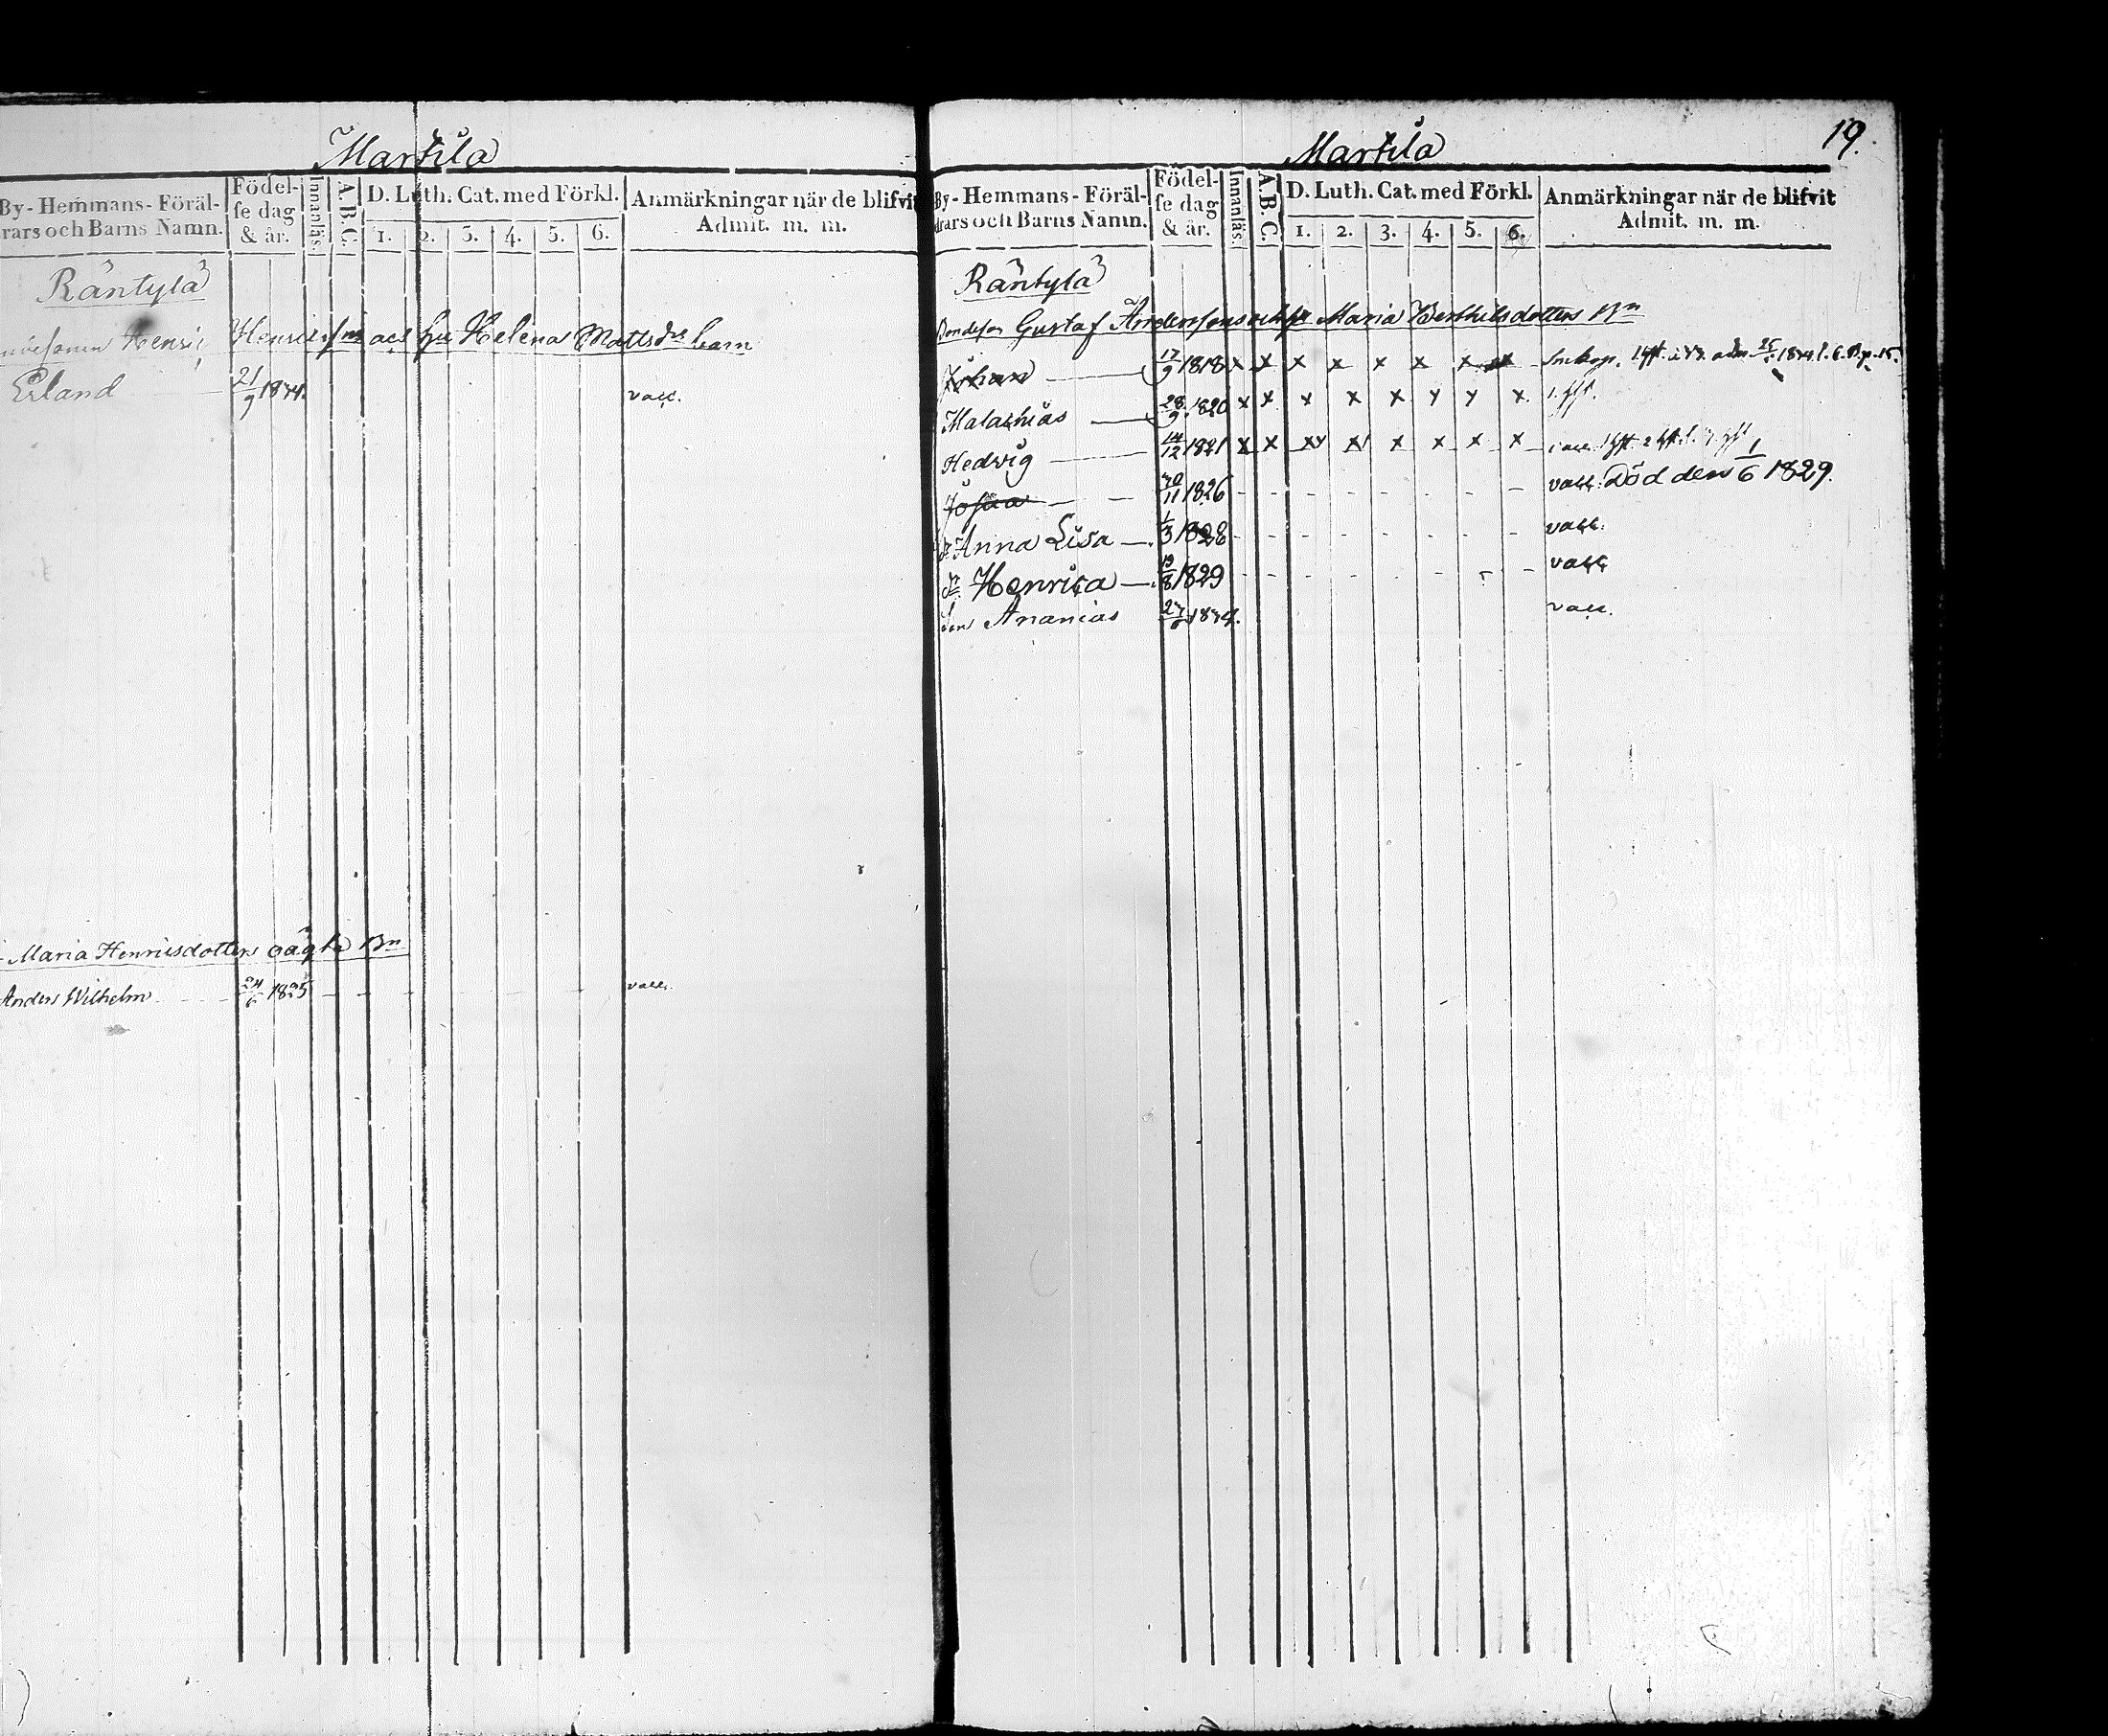 Martila
By- Hemmans- Föräl-
rars och Barns Namn.
Födel-
se dag
& år.
Innanläs.
A.B.C.
D. Luth. Cat. med Förkl.
1. 2. 3. 4. 5. 6.
Anmärkningar när de blifvit
Admit. m. m.
Räntylä
Henric Henricsson och hu Helena Mattsdrs barn
Erland 21/9 1834. vacc.
Maria Henricsdotters oägta Bn
Anders Wilhelm 24/6 1825 vacc.
19.
Martila
By- Hemmans- Föräl-
drars och Barns Namn.
Födel-
se dag
& år.
Innanläs.
A.B.C.
D. Luth. Cat. med Förkl.
1. 2. 3. 4. 5. 6.
Anmärkningar när de blifvit
Admit. m. m.
Räntylä
Bondeson Gustaf Anderssons och hu Maria Berthilsdotters Bn
Johan 17/9 1818 x x x x x x x x Smkop.
Malachias 28/9 1820 x x x x x x x x
Hedvig 14/12 1821 x x x x x x x x
Josua 30/11 1826 - - - - - - - - vacc. Död den 1/6 1829.
dr Anna Lisa 1/3 1828 - - - - - - - - vacc.
dr Henrica 19/8 1829 - - - - - - - - vacc
son Ananias 1834. vacc.